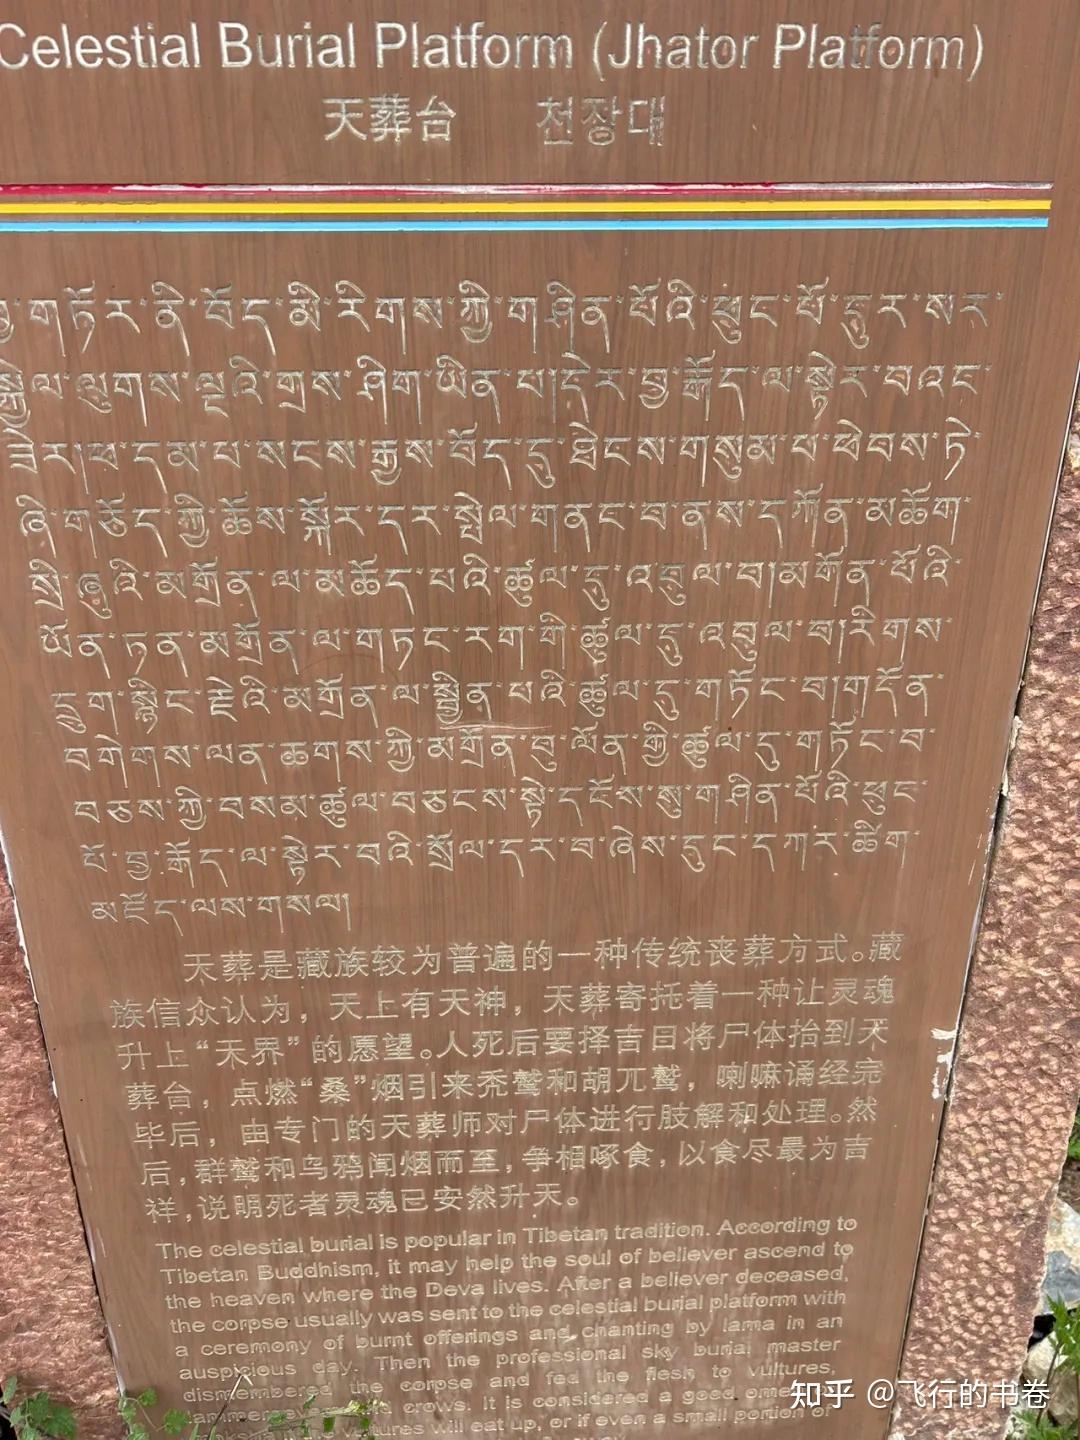 Celestial Burial Platform (Jhator Platform)
天葬台 천장대
གཏོར་ནི་བོད་མི་རིགས་ཀྱི་གཤིན་པོའི་ཕུང་པོ་དུར་སར་
སྐྱེལ་ལུགས་ལྔའི་གྲས་ཤིག་ཡིན་པ།དེར་བྱ་རྒོད་ལ་སྟེར་བའང་
ཟེར།ཕ་དམ་པ་སངས་རྒྱས་བོད་དུ་ཐེངས་གསུམ་པ་ཕེབས་ཏེ་
ཞི་གཅོད་ཀྱི་ཆོས་སྐོར་དར་སྤེལ་གནང་བ་ནས་དཀོན་མཆོག་
སྲི་ཞུའི་མགྲོན་ལ་མཆོད་པའི་ཚུལ་དུ་འབུལ་བ།མགོན་པོའི་
ཡོན་ཏན་མགྲོན་ལ་གཏང་རག་གི་ཚུལ་དུ་འབུལ་བ།རིགས་
དྲུག་སྙིང་རྗེའི་མགྲོན་ལ་སྦྱིན་པའི་ཚུལ་དུ་གཏོང་བ།གདོན་
བགེགས་ལན་ཆགས་ཀྱི་མགྲོན་བུ་ལོན་གྱི་ཚུལ་དུ་གཏོང་བ་
བཅས་ཀྱི་བསམ་ཚུལ་བཅངས་སྟེ་དངོས་སུ་གཤིན་པོའི་ཕུང་
པོ་བྱ་རྒོད་ལ་སྟེར་བའི་སྲོལ་དར་བ་ཞེས་དུང་དཀར་ཚིག་
མཛོད་ལས་གསལ།
天葬是藏族较为普遍的一种传统丧葬方式。藏
族信众认为，天上有天神，天葬寄托着一种让灵魂
升上“天界”的愿望。人死后要择吉日将尸体抬到天
葬台，点燃“桑”烟引来秃鹫和胡兀鹫，喇嘛诵经完
毕后，由专门的天葬师对尸体进行肢解和处理。然
后，群鹫和乌鸦闻烟而至，争相啄食，以食尽最为吉
祥，说明死者灵魂已安然升天。
The celestial burial is popular in Tibetan tradition. According to
Tibetan Buddhism, it may help the soul of believer ascend to
the heaven where the Deva lives. After a believer deceased,
the corpse usually was sent to the celestial burial platform with
a ceremony of burnt offerings and chanting by lama in an
auspicious day. Then the professional sky burial master
dismembered the corpse and fed the flesh to vultures,
crows. It is considered a good
vultures will eat up, or if even a small portion of
知乎 @飞行的书卷